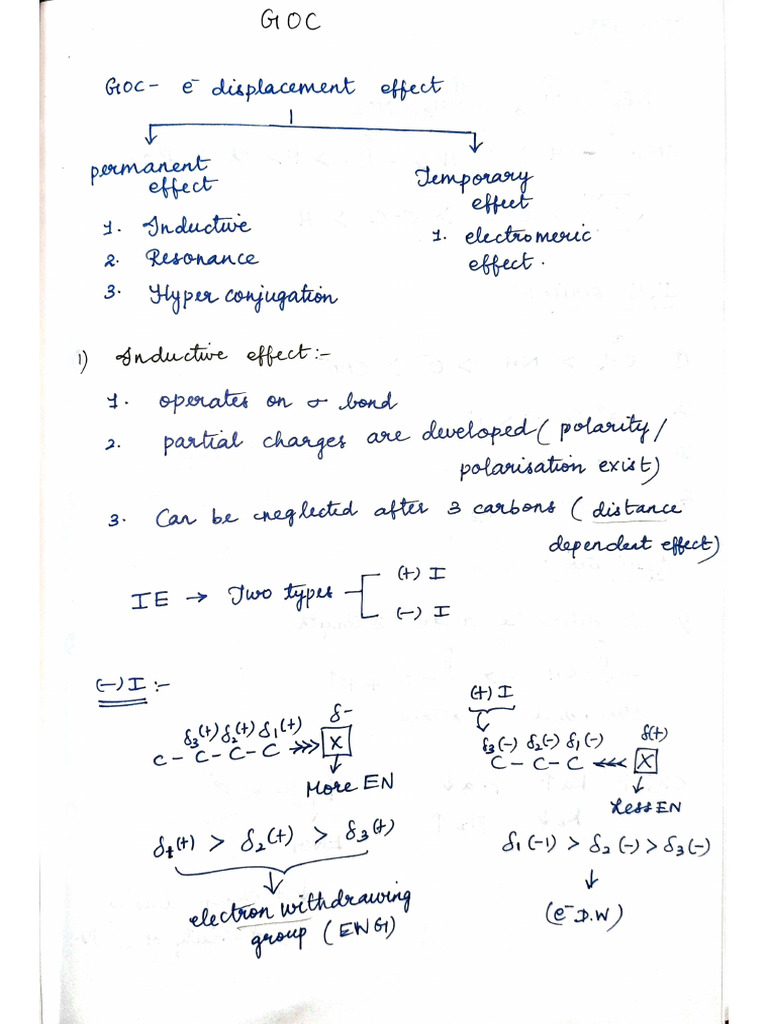 GOC
GOC - e⁻ displacement effect
permanent effect
1. Inductive
2. Resonance
3. Hyper conjugation
Temporary effect
1. electromeric effect.
1) Inductive effect :-
1. operates on σ bond
2. partial charges are developed ( polarity /
polarisation exist)
3. Can be neglected after 3 carbons ( distance
dependent effect)
IE → Two types
(+) I
(-) I
(-) I :-
δ-
δ₃(+) δ₂(+) δ₁(+)
C - C - C - C >>> X
More EN
δ₁(+) > δ₂(+) > δ₃(+)
electron withdrawing
group ( EWG)
(+) I
δ₃(-) δ₂(-) δ₁(-) δ(+)
C - C - C <<< X
Less EN
δ₁(-1) > δ₂(-) > δ₃(-)
(e⁻ D.W)